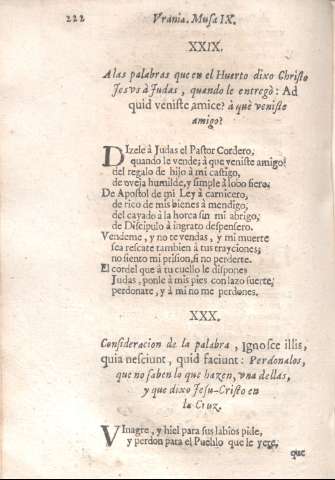 222 Vrania. Musa IX.
XXIX.
A las palabras que en el Huerto dixo Christo
Jesvs à Judas, quando le entregò: Ad
quid veniste, amice? à què veniste
amigo?
DIzele à Judas el Pastor Cordero,
quando le vende; à que veniste amigo?
del regalo de hijo à mi castigo,
de oveja humilde, y simple à lobo fiero.
De Apostol de mi Ley à carnicero,
de rico de mis bienes à mendigo,
del cayado à la horca sin mi abrigo,
de Discipulo à ingrato despensero.
Vendeme, y no te vendas, y mi muerte
sea rescate tambien à tus trayciones;
no siento mi prision, si no perderte.
El cordel que à tu cuello le dispones
Judas, ponle à mis pies con lazo fuerte,
perdonate, y à mi no me perdones.
XXX.
Consideracion de la palabra, Ignosce illis,
quia nesciunt, quid faciunt: Perdonalos,
que no saben lo que hazen, vna dellas,
y que dixo Jesu-Cristo en
la Cruz.
VInagre, y hiel para sus labios pide,
y perdon para el Pueblo que le yere,
que